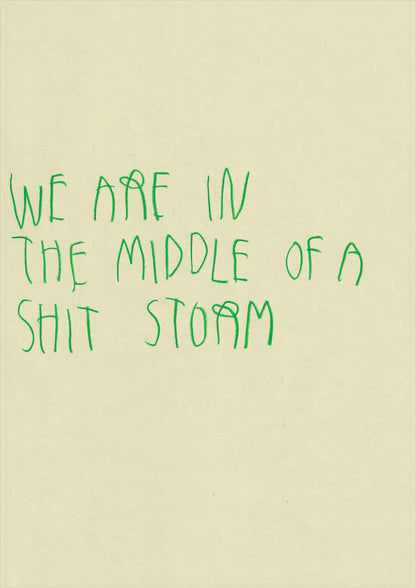 WE ARE IN
THE MIDDLE OF A
SHIT STORM